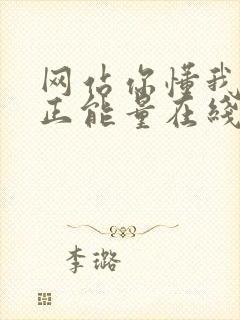 网站你懂我
正能量在线
李璐